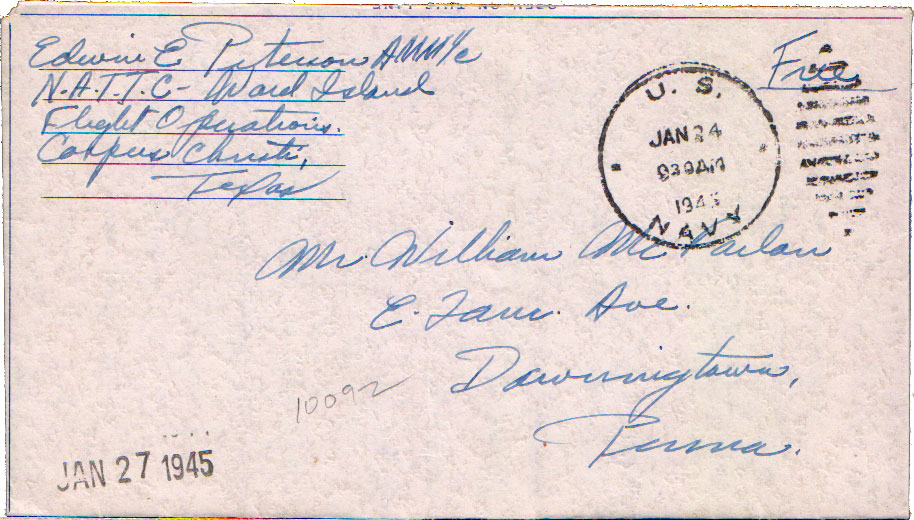 Edwin E Peterson AMM1/c
N.A.T.T.C- Ward Island
Flight Operations.
Corpus Christi,
Texas
Free
U. S.
JAN 24
930AM
1945
NAVY
Mr. William Mc Parlan
E. Lanc. Ave.
Downingtown,
Penna.
10092
JAN 27 1945